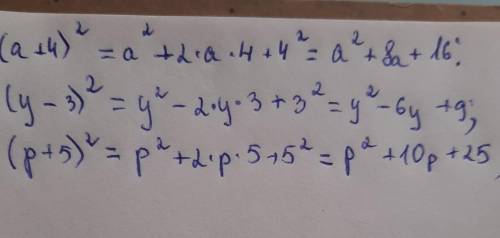 (a+4)² = a² + 2·a·4 + 4² = a² + 8a + 16;
(y - 3)² = y² - 2·y·3 + 3² = y² - 6y + 9;
(p+5)² = p² + 2·p·5 + 5² = p² + 10p + 25